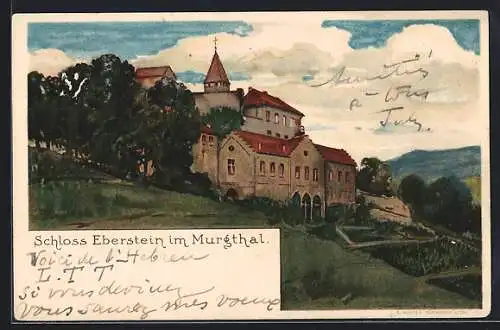 Amitiés
a - Vous
Schloss Eberstein im Murgthal.
Voici de l'Hebreu
L. T. T
Si vous deviney
Vous saurez mes voeux